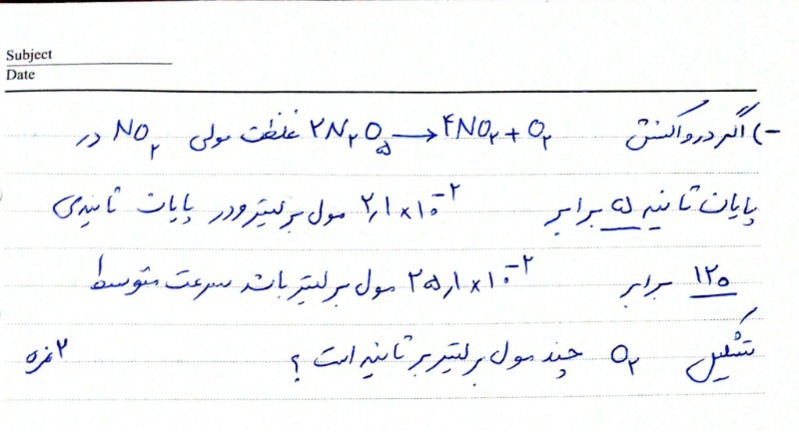 Subject
Date
-) اگر در واکنش ۲N₂O₅ → ۴NO₂ + O₂ غلظت مولی NO₂ در
پایان ثانیه ۵ برابر ۲٫۱×۱۰⁻² مول بر لیتر و در پایان ثانیه‌ی
۱۲۵ برابر ۲۵٫۱×۱۰⁻² مول بر لیتر باشد سرعت متوسط
تشکیل O₂ چند مول بر لیتر بر ثانیه است ؟ ۲ نمره